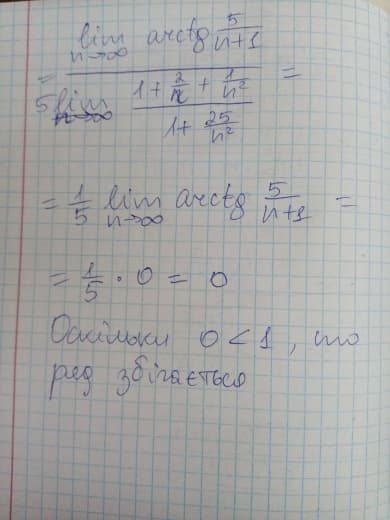 lim n→∞ arctg 5/(n+1)
= ――――――――――――― =
5 lim n→∞ (1 + 2/n + 1/n²)/(1 + 25/n²)
= 1/5 lim n→∞ arctg 5/(n+1) =
= 1/5 · 0 = 0
Оскільки 0 < 1, то
ряд збігається